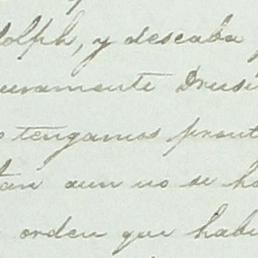 dolph, y deseaba
uramente Drusi
tengamos pront
tan aun no se ha
orden que habi